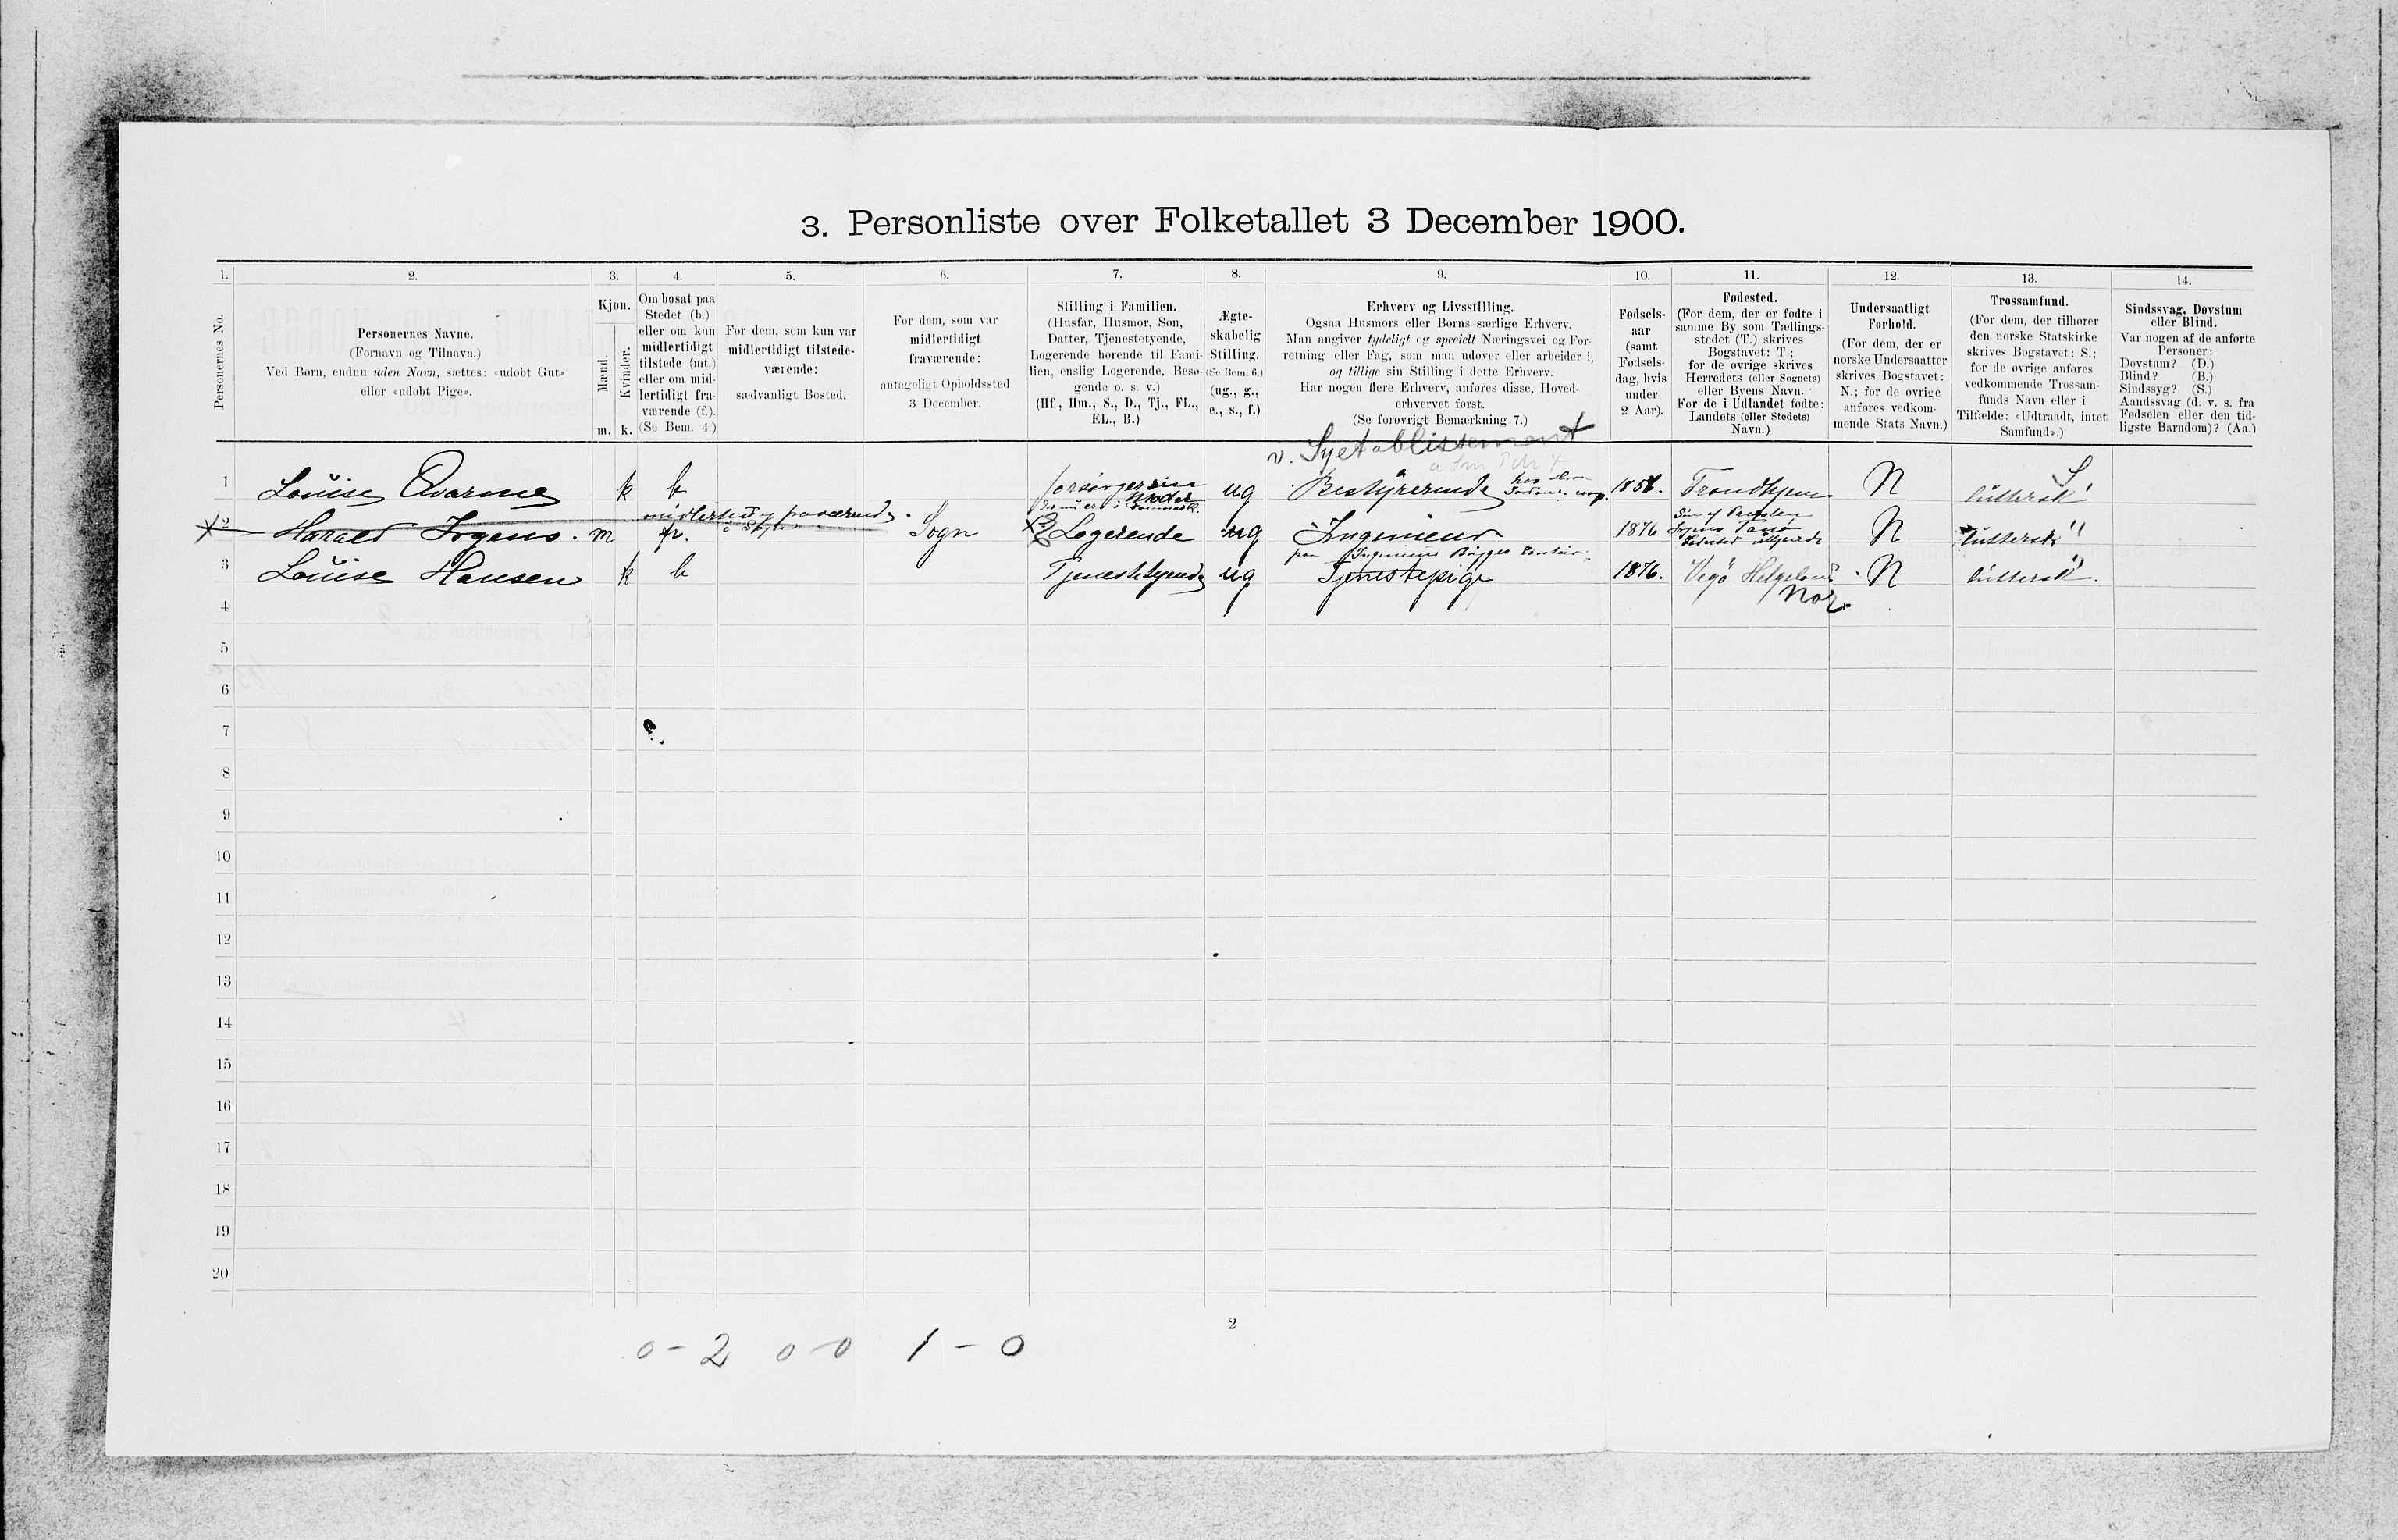 3. Personliste over Folketallet 3 December 1900.
1. 2. 3. 4. 5. 6. 7. 8. 9. 10. 11. 12. 13. 14.
Personernes No.
Personernes Navne.
(Fornavn og Tilnavn.)
Ved Børn, endnu uden Navn, sættes: «udøbt Gut»
eller «udøbt Pige».
Kjøn.
Mænd.
Kvinder.
m. k.
Om bosat paa
Stedet (b.)
eller om kun
midlertidigt
tilstede (mt.)
eller om mid-
lertidigt fra-
værende (f.).
(Se Bem. 4)
For dem, som kun var
midlertidigt tilstede-
værende:
sædvanligt Bosted.
For dem, som var
midlertidigt
fraværende:
antageligt Opholdssted
3 December.
Stilling i Familien.
(Husfar, Husmor, Søn,
Datter, Tjenestetyende,
Logerende hørende til Fami-
lien, enslig Logerende, Besø-
gende o. s. v.)
(Hf., Hm., S., D., Tj., FL.,
EL., B.)
Ægte-
skabelig
Stilling.
(Se Bem. 6.)
(ug., g.,
e., s., f.)
Erhverv og Livsstilling.
Ogsaa Husmors eller Børns særlige Erhverv.
Man angiver tydeligt og specielt Næringsvei og For-
retning eller Fag, som man udøver eller arbeider i,
og tillige sin Stilling i dette Erhverv.
Har nogen flere Erhverv, anføres disse, Hoved-
erhvervet først.
(Se forøvrigt Bemærkning 7.)
Fødsels-
aar
(samt
Fødsels-
dag, hvis
under
2 Aar).
Fødested.
(For dem, der er fødte i
samme By som Tællings-
stedet (T.) skrives
Bogstavet: T;
for de øvrige skrives
Herredets (eller Sognets)
eller Byens Navn.
For de i Udlandet fødte:
Landets (eller Stedets)
Navn.)
Undersaatligt
Forhold.
(For dem, der er
norske Undersaatter
skrives Bogstavet:
N.; for de øvrige
anføres vedkom-
mende Stats Navn.)
Trossamfund.
(For dem, der tilhører
den norske Statskirke
skrives Bogstavet: S.;
for de øvrige anføres
vedkommende Trossam-
funds Navn eller i
Tilfælde: «Udtraadt, intet
Samfund».)
Sindssvag, Døvstum
eller Blind.
Var nogen af de anførte
Personer:
Døvstum? (D.)
Blind? (B.)
Sindssyg? (S.)
Aandssvag (d. v. s. fra
Fødselen eller den tid-
ligste Barndom)? (Aa.)
v. Syetablissement
1 Louise Qvarme k b forsørgerske ug Bestyrerinde 1856. Trondhjem N S luttersk
midlertidig fraværende
2 Harald Irgens. m fr. Sogn Logerende ug Ingenieur 1876 N luttersk "
3 Louise Hansen k b Tjenestetyende ug Tjenestepige 1876. Vegø Helgeland N luttersk "
Nor.
4
5
6
7
8
9
10
11
12
13
14
15
16
17
18
19
20
2
0 - 2 0 - 0 1 - 0